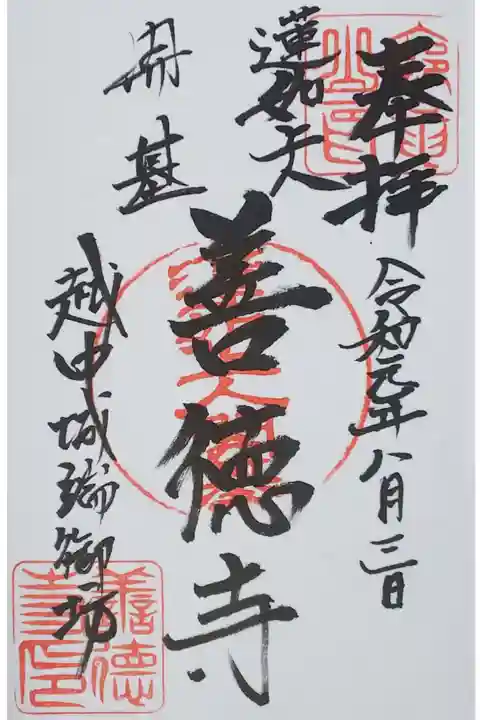 奉拝
令和元年八月三日
蓮如
善徳寺
開基
越中城端御坊
善徳